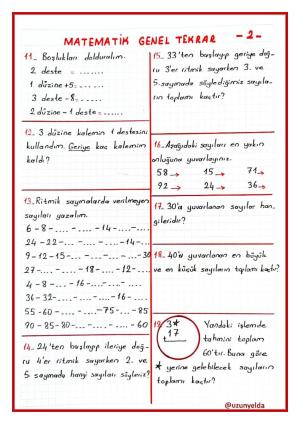 MATEMATİK GENEL TEKRAR -2-
11_ Boşlukları dolduralım.
2 deste = .......
1 düzine+5=.......
3 deste -8=......
2 düzine-1 deste=......
12_ 3 düzine kalemin 1 destesini
kullandım. Geriye kaç kalemim
kaldı?
13_ Ritmik saymalarda verilmeyen
sayıları yazalım.
6-8-....-....-14-....-....
24-22-....-....-....-14-....
9-12-15-....-....-....-30-....
27-....-....-18-....-12-....
4-8-....-16-....-....-....
36-32-....-....-....-16-....
55-60-....-....-75-85
90-85-80-....-....-....-60-....
14_ 24'ten başlayıp ileriye doğ-
ru 4'er ritmik sayarken 2. ve
5. sayımada hangi sayıları söyleriz?
15_ 33'ten başlayıp geriye doğ-
ru 3'er ritmik sayarken 3. ve
5. sayımada söylediğimiz sayıla-
rın toplamı kaçtır?
16_ Aşağıdaki sayıları en yakın
onluğuna yuvarlayınız.
58→ 15→ 71→
92→ 24→ 36→
17_ 30'a yuvarlanan sayılar han-
gileridir?
18_ 40'a yuvarlanan en büyük
ve en küçük sayıların toplamı kaçtır?
19_ 3* Yandaki işlemde
17 tahmini toplam
+ 60'tır. Buna göre
* yerine gelebilecek sayıların
toplamı kaçtır?
@uzunyelda